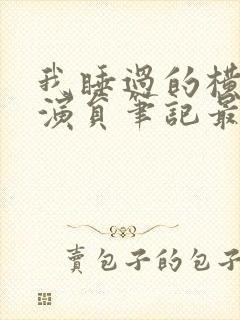 我睡過的橫
演員筆記最
賣包子的包子